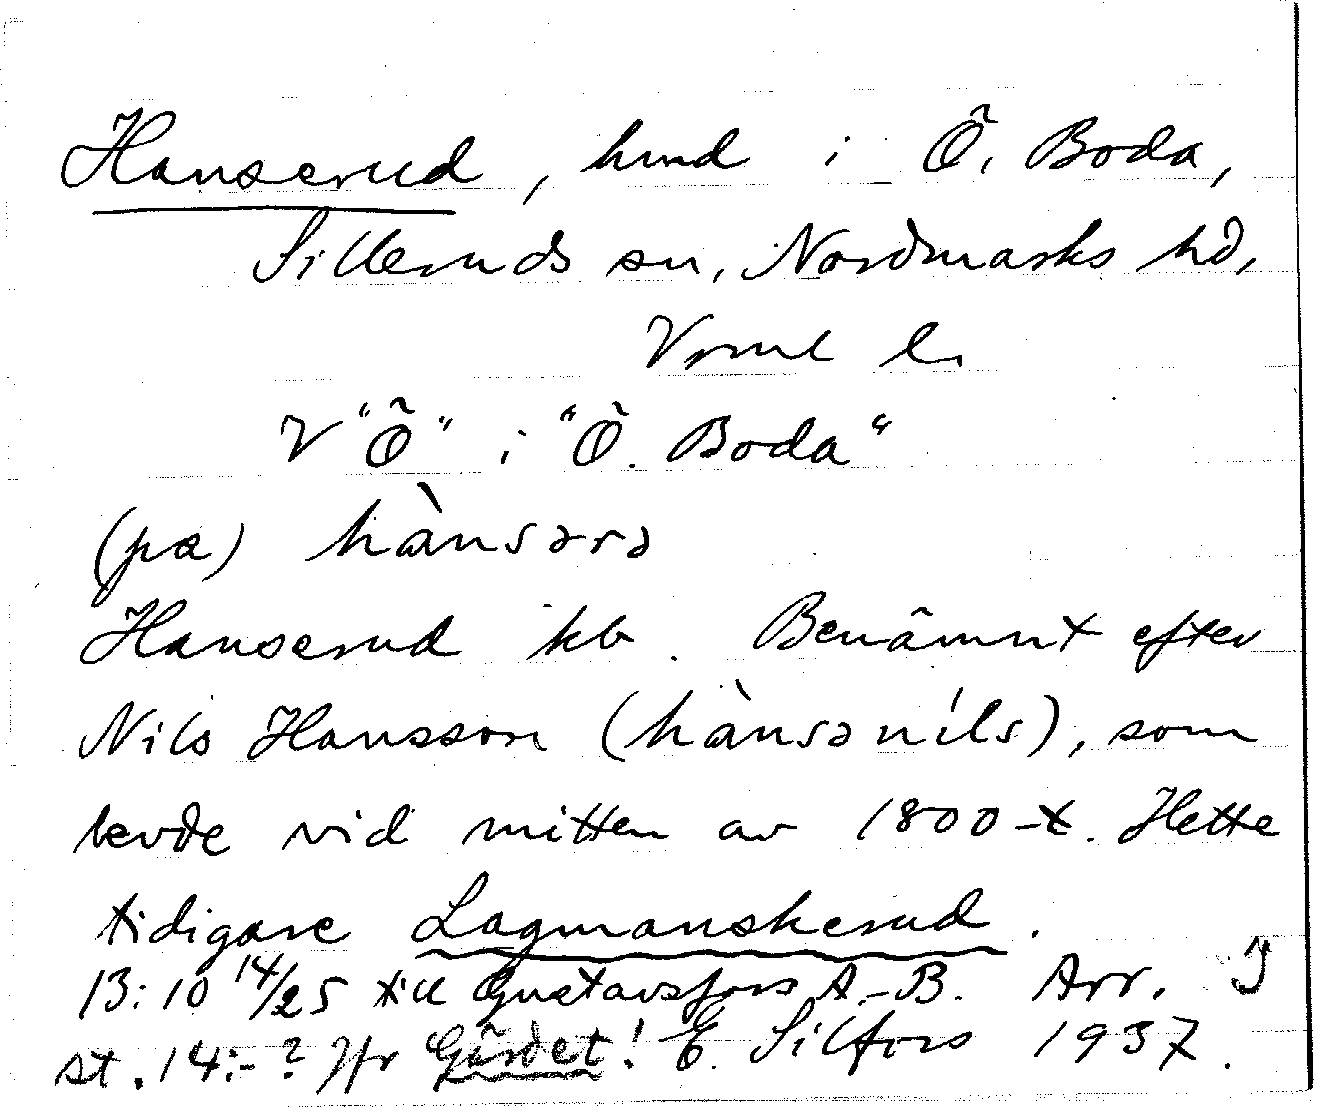 Hanserud, hmd i Ö. Boda,
Silleruds sn, Nordmarks hd,
Vrml l.
V "Ö" i "Ö. Boda"
(pa) hànsərə
Hanserud kb. Benämnt efter
Nils Hansson (hànsəníls), som
levde vid mitten av 1800-t. Hette
tidigare Lagmanskerud.
13:10 14/25 till Gustavsfors A.-B. Arr. I
st. 14:-? Jfr Gärdet! E. Silfors 1937.